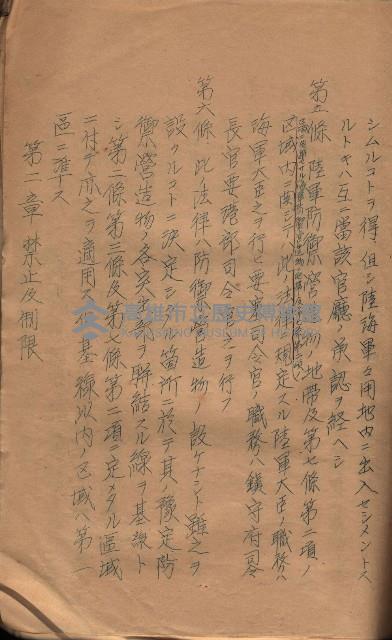 シムルコトヲ得但シ陸海軍各用地内ニ出入セシメントス
ルトキハ互ニ當該官廳ノ承認ヲ経ヘシ
第五條 陸軍防禦營造物地帶及第七條第二項ノ
区域内ニ関シテハ此ノ法律ニ規定スル陸軍大臣ノ職務ハ
海軍大臣之ヲ行ヒ要塞司令官ノ職務ハ鎮守府司令
長官要港部司令官之ヲ行フ
第六條 此法律ハ防禦營造物ノ設ケナシト雖之ヲ
設クルコトニ決定シタル箇所ニ於テ其ノ豫定防
禦營造物ノ各突出部ヲ聯結スル線ヲ基線ト
シ第二條第三條及第七條第二項ニ定メタル區域
ニ付テ亦之ヲ適用ス其ノ基線以内ノ区域ハ第一
區ニ準ス
第二章 禁止及制限
高雄市立歷史博物館